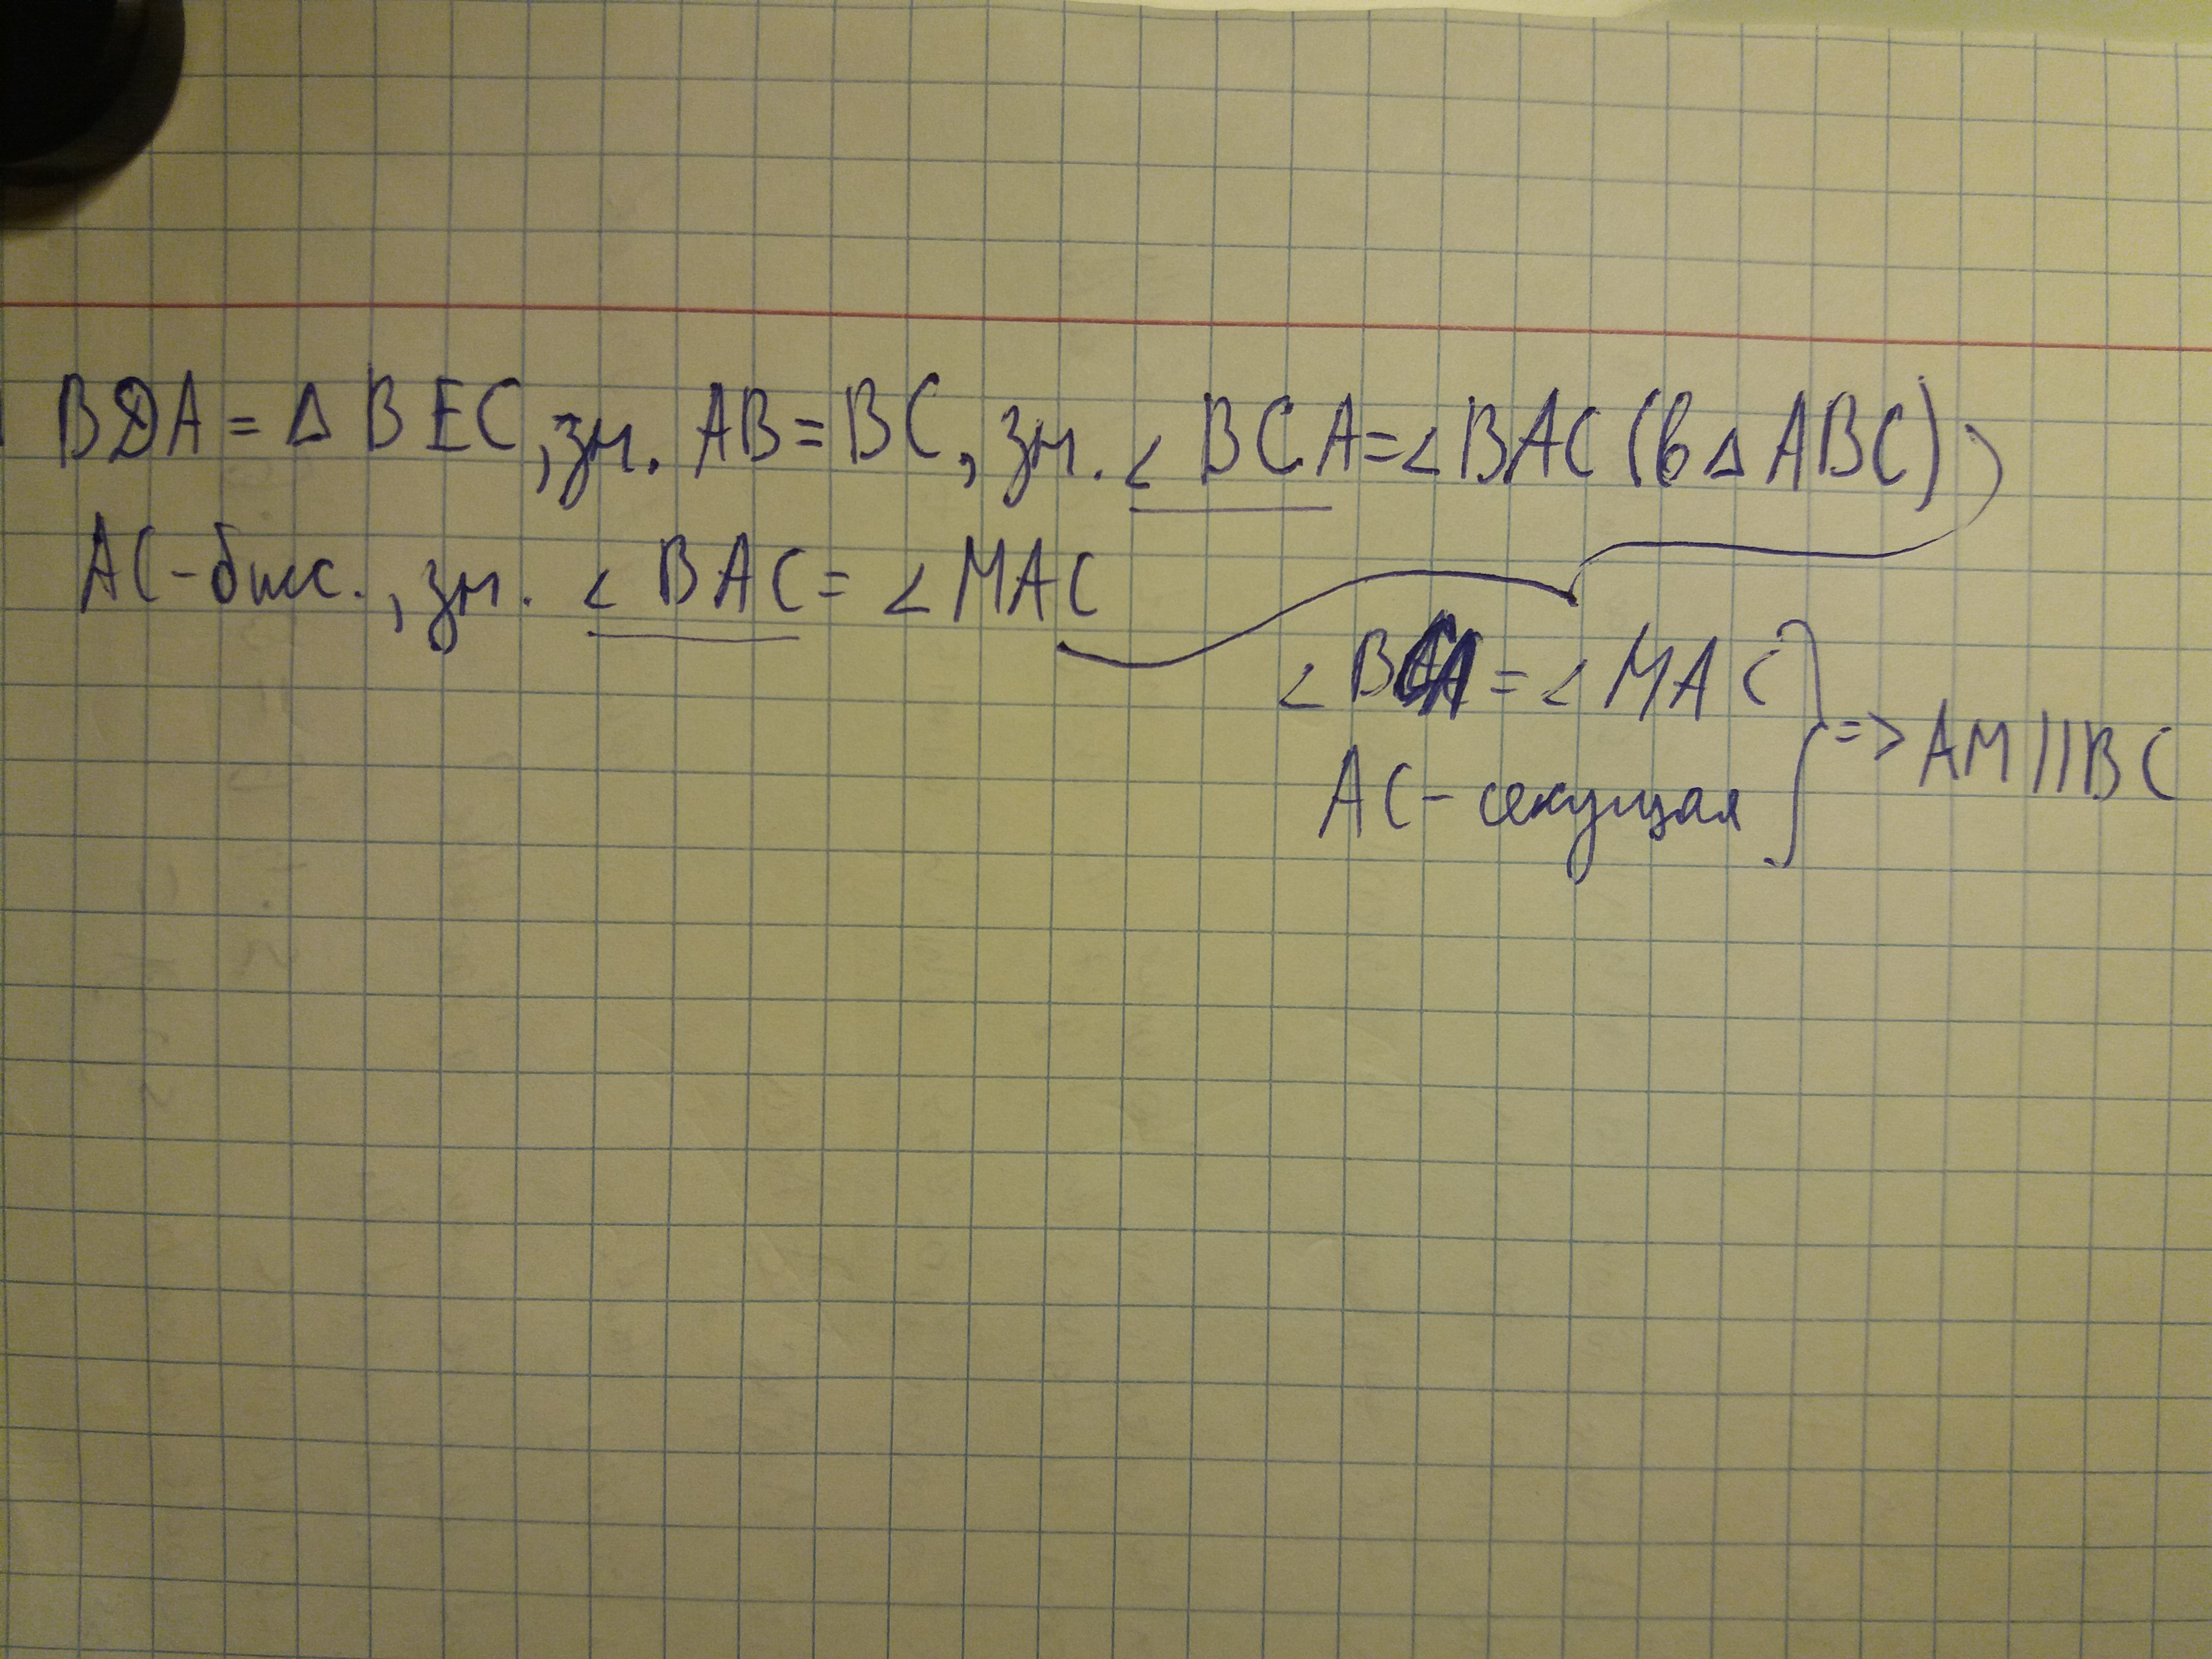 BDA = Δ BEC, зн. AB = BC, зн. ∠ BCA = ∠ BAC (в Δ ABC)
AC - бисс., зн. ∠ BAC = ∠ MAC
∠ BCA = ∠ MAC
AC - секущая
=> AM || BC